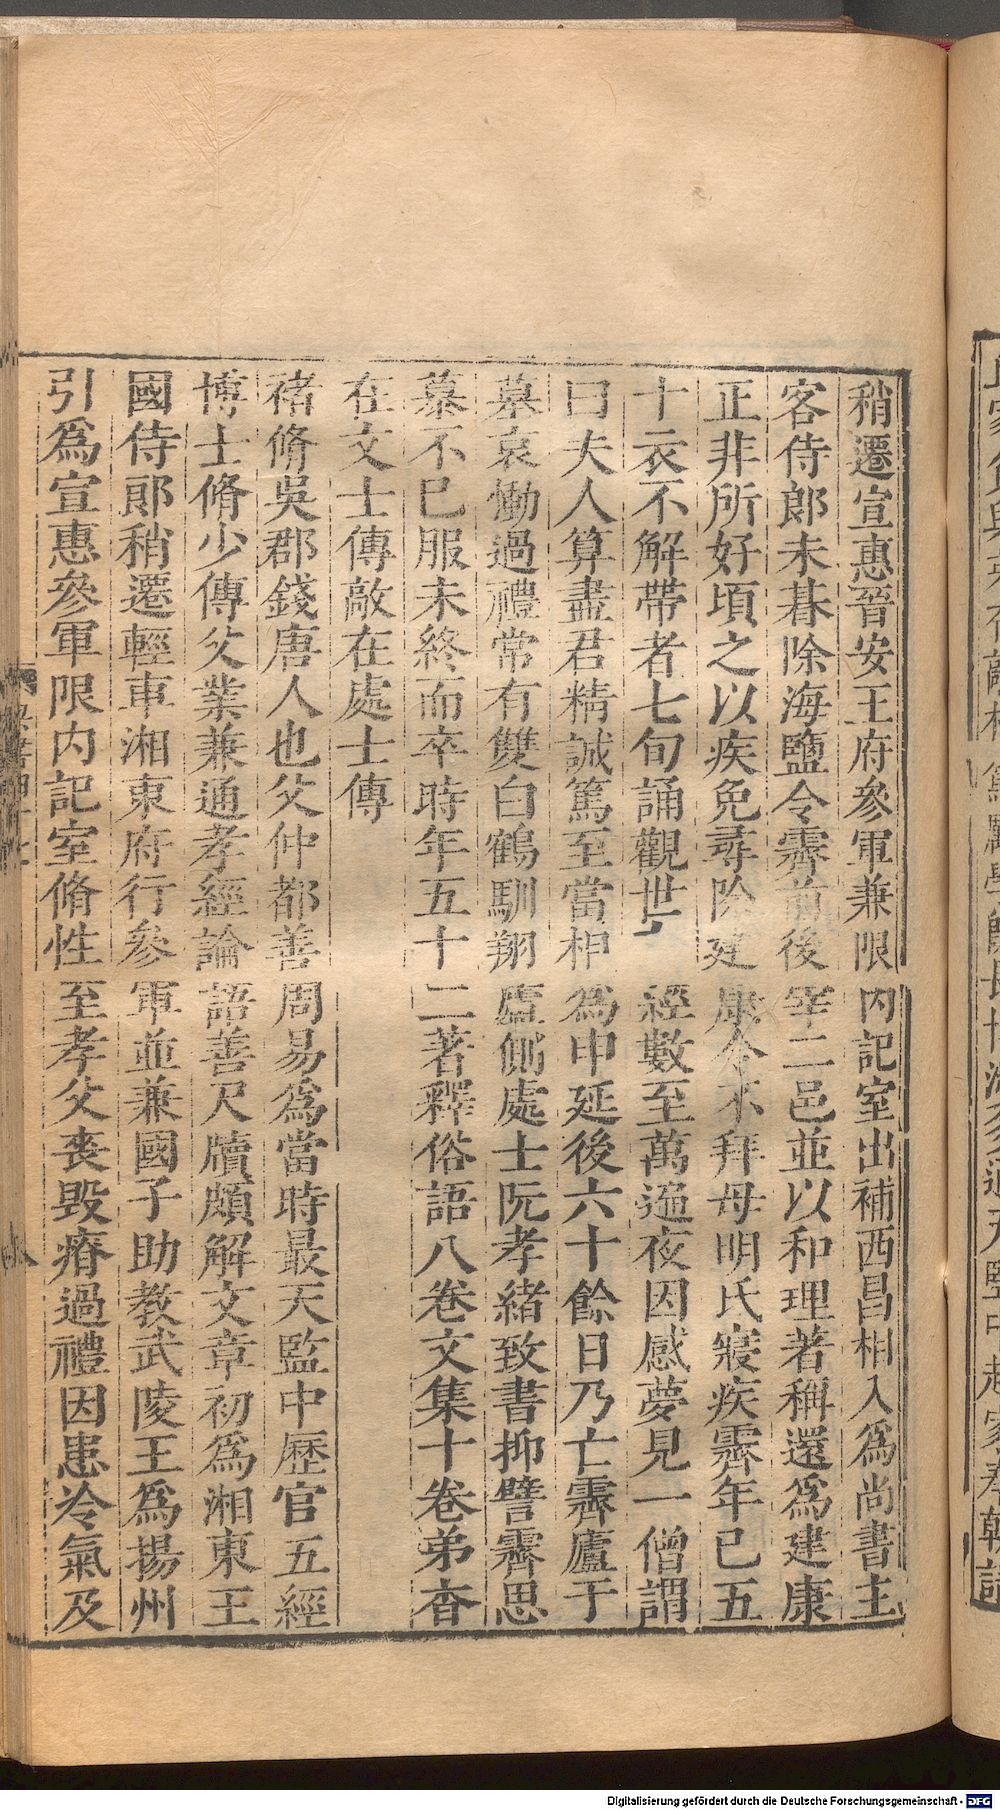 稍遷宣惠晉安王府參軍兼限內記室出補西昌相入爲尚書主
客侍郎未朞除海鹽令霽前後宰二邑並以和理著稱還爲建康
正非所好頃之以疾免尋除建康令不拜母明氏寢疾霽年已五
十衣不解帶者七旬誦觀世經數至萬遍夜因感夢見一僧謂
曰夫人算盡君精誠篤至當相爲申延後六十餘日乃亡霽廬于
墓哀慟過禮常有雙白鶴馴翔廬側處士阮孝緒致書抑譬霽思
慕不已服未終而卒時年五十二著釋俗語八卷文集十卷弟杳
在文士傳敵在處士傳
褚脩吳郡錢唐人也父仲都善周易爲當時最天監中歷官五經
博士脩少傳父業兼通孝經論語善尺牘頗解文章初爲湘東王
國侍郎稍遷輕車湘東府行參軍並兼國子助教武陵王爲揚州
引爲宣惠參軍限內記室脩性至孝父喪毀瘠過禮因患冷氣及
Digitalisierung gefördert durch die Deutsche Forschungsgemeinschaft - DFG